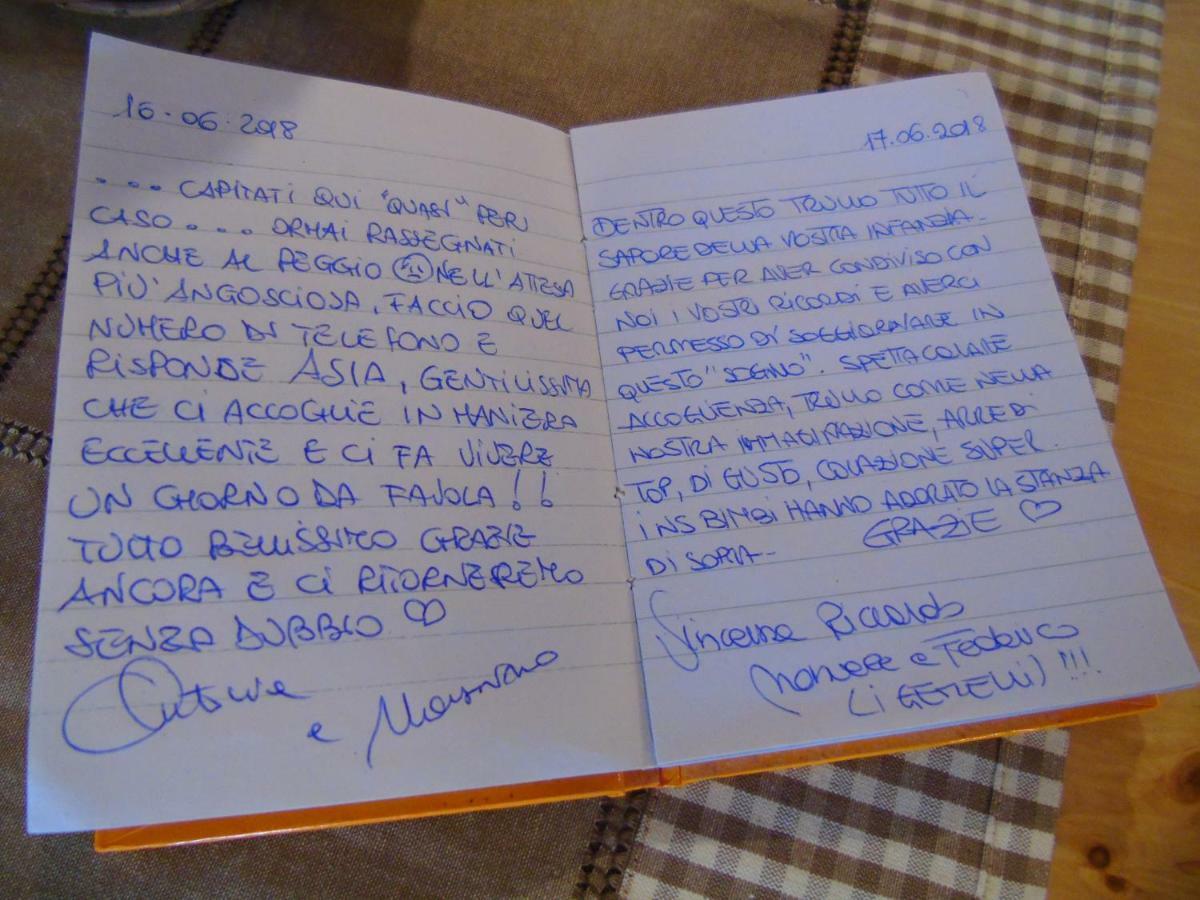 16.06.2018
.... CAPITATI QUI "QUASI" PER
CASO .... ORMAI RASSEGNATI
ANCHE AL PEGGIO NELL'ATTESA
PIÙ ANGOSCIOSA, FACCIO QUEL
NUMERO DI TELEFONO E
RISPONDE ASIA, GENTILISSIMA
CHE CI ACCOGLIE IN MANIERA
ECCELLENTE E CI FA VIVERE
UN GIORNO DA FAVOLA!!
TUTTO BELLISSIMO GRAZIE
ANCORA E CI RITORNEREMO
SENZA DUBBIO ♡
e
17.06.2018
DENTRO QUESTO TRULLO TUTTO IL
SAPORE DELLA VOSTRA INFANZIA.
GRAZIE PER AVER CONDIVISO CON
NOI I VOSTRI RICORDI E AVERCI
PERMESSO DI SOGGIORNARE IN
QUESTO "SOGNO". SPETTACOLARE
ACCOGLIENZA, TRULLO COME NELLA
NOSTRA IMMAGINAZIONE, ARREDI
TOP, DI GUSTO, COLAZIONE SUPER.
I NS BIMBI HANNO ADORATO LA STANZA
DI SOPRA - GRAZIE ♡
Riccardo
e Federico
(I GEMELLI) !!!